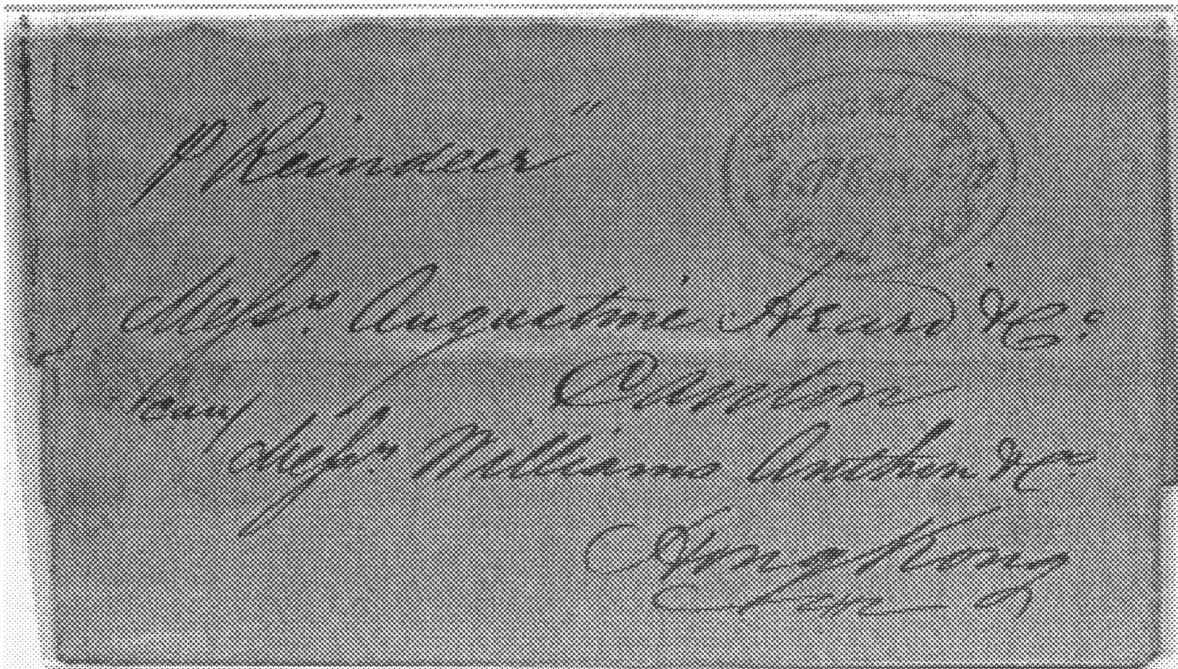 p "Reindeer"
Messrs. Augustine Heard & Co.
Canton
Care
Messrs. Williams Anthon & Co
Hong Kong